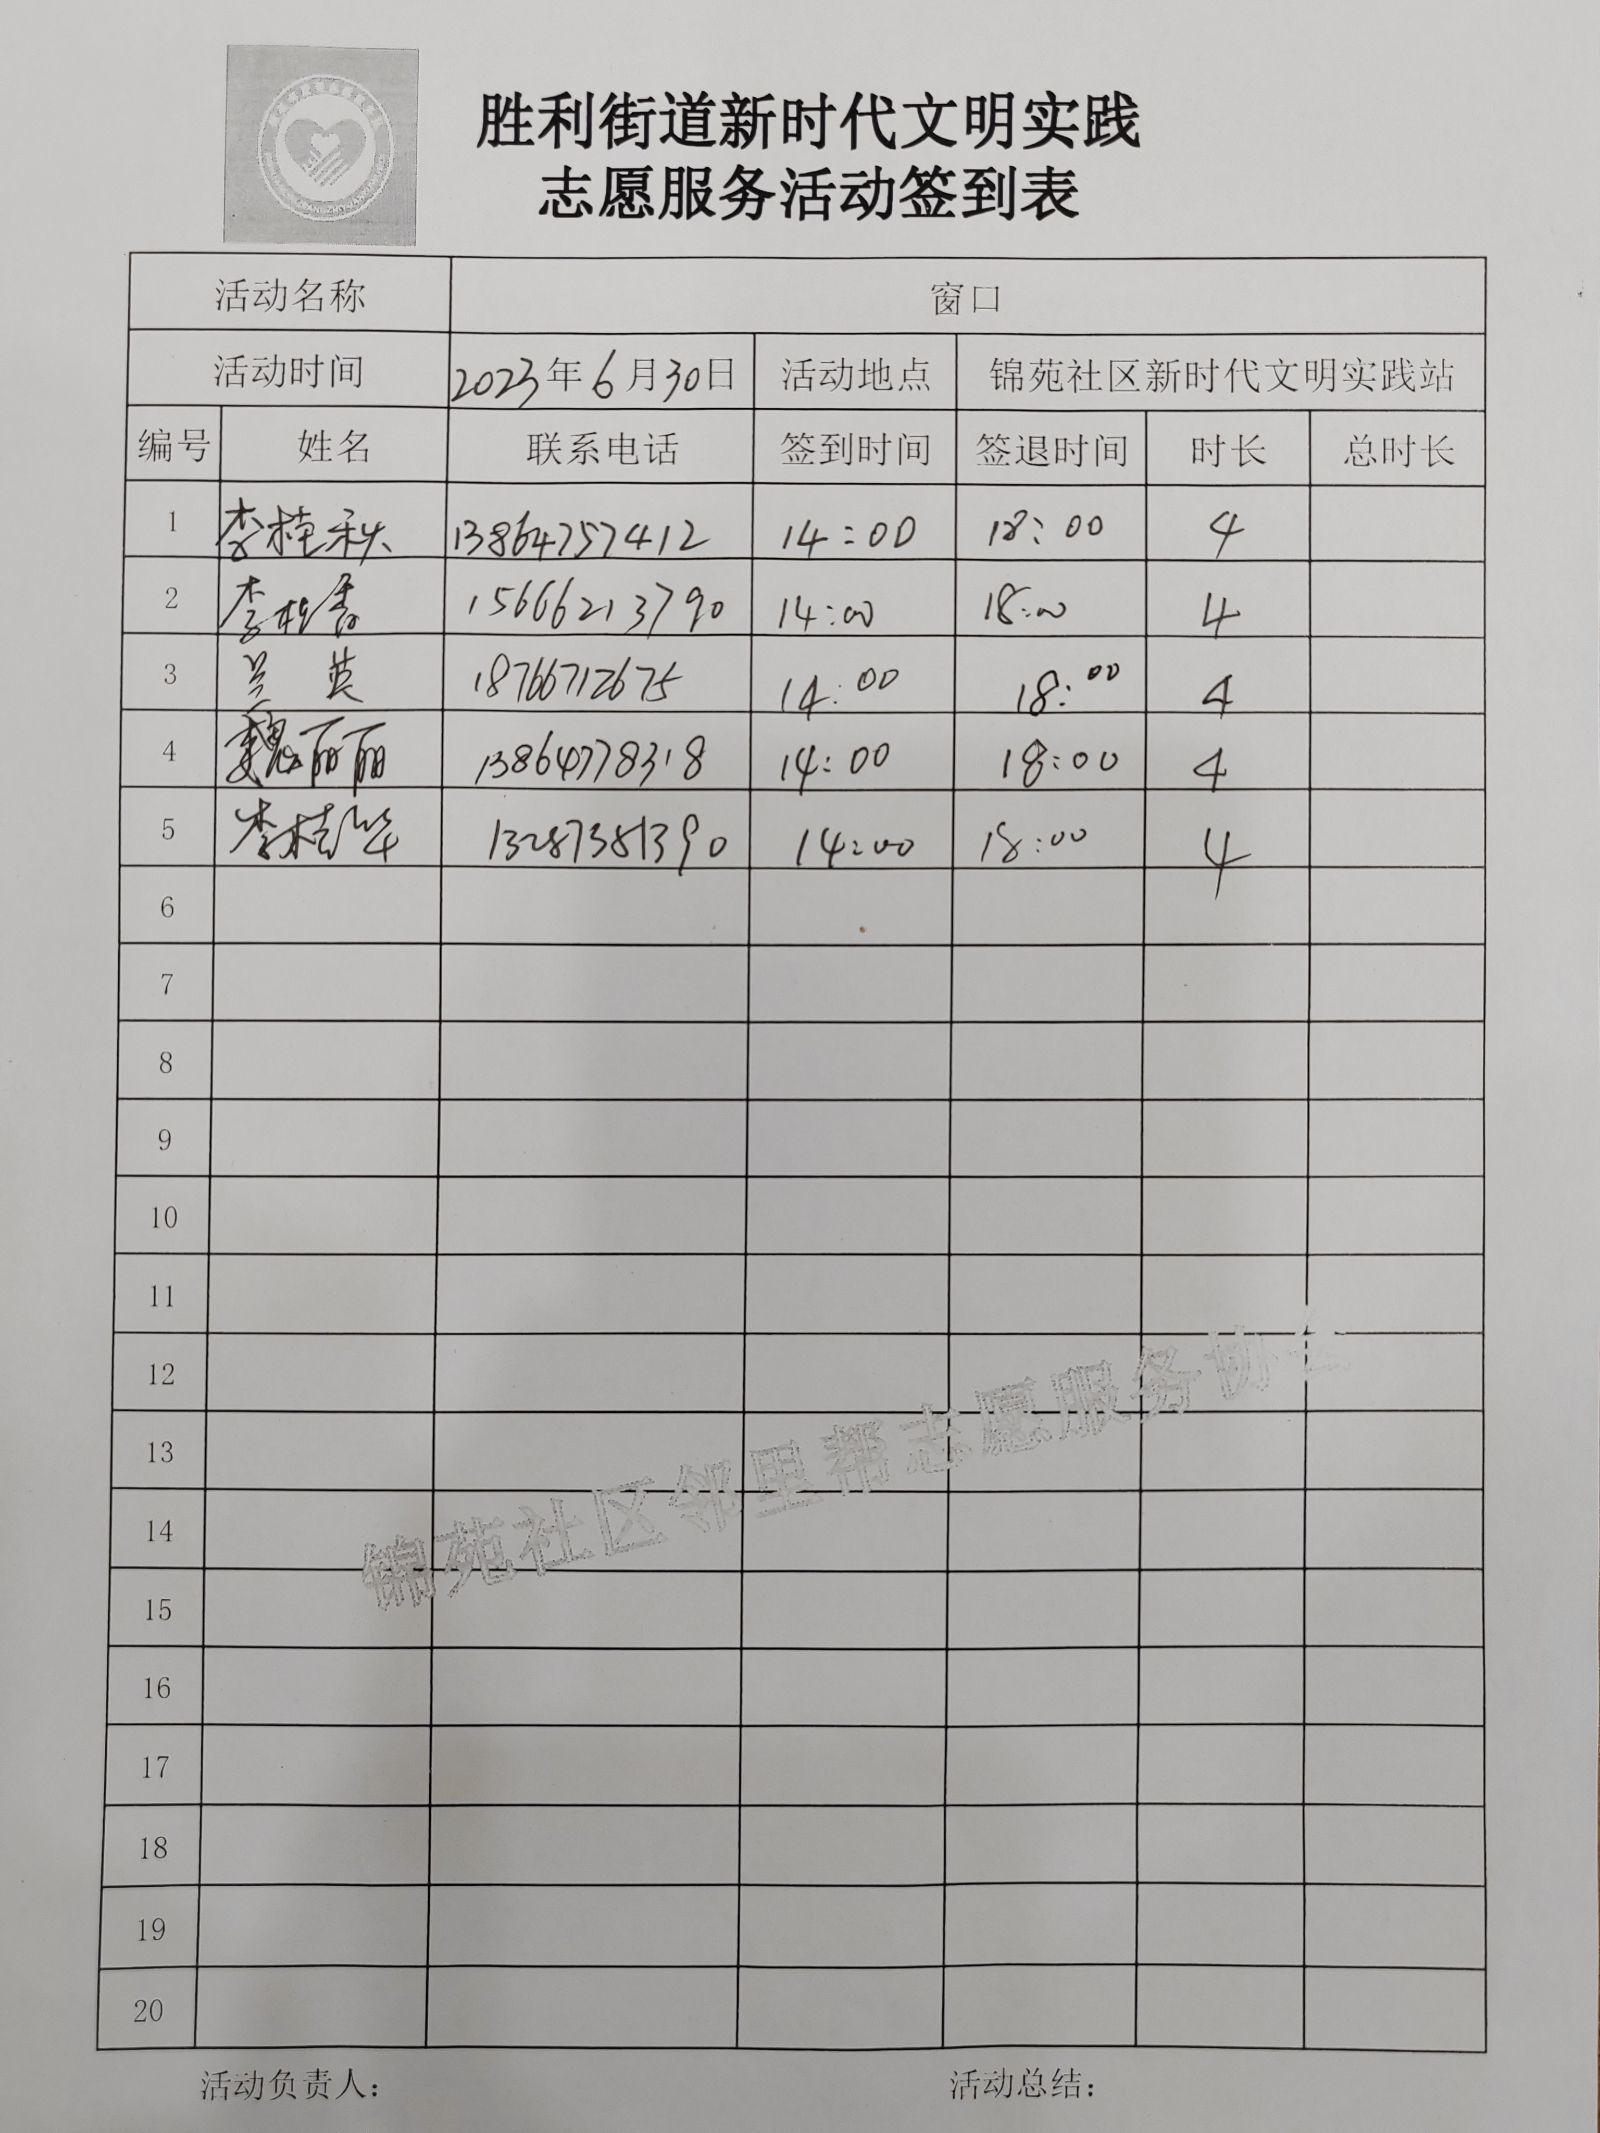 胜利街道新时代文明实践
志愿服务活动签到表
活动名称 窗口
活动时间 2023年6月30日 活动地点 锦苑社区新时代文明实践站
编号 姓名 联系电话 签到时间 签退时间 时长 总时长
1 李桂秋 13864757412 14:00 18:00 4
2 李桂香 15666213790 14:00 18:00 4
3 兰英 18766712675 14:00 18:00 4
4 魏丽丽 13864778318 14:00 18:00 4
5 李桂华 13287381390 14:00 18:00 4
6
7
8
9
10
11
12
13
14
15
16
17
18
19
20
锦苑社区邻里帮志愿服务协会
活动负责人: 活动总结: